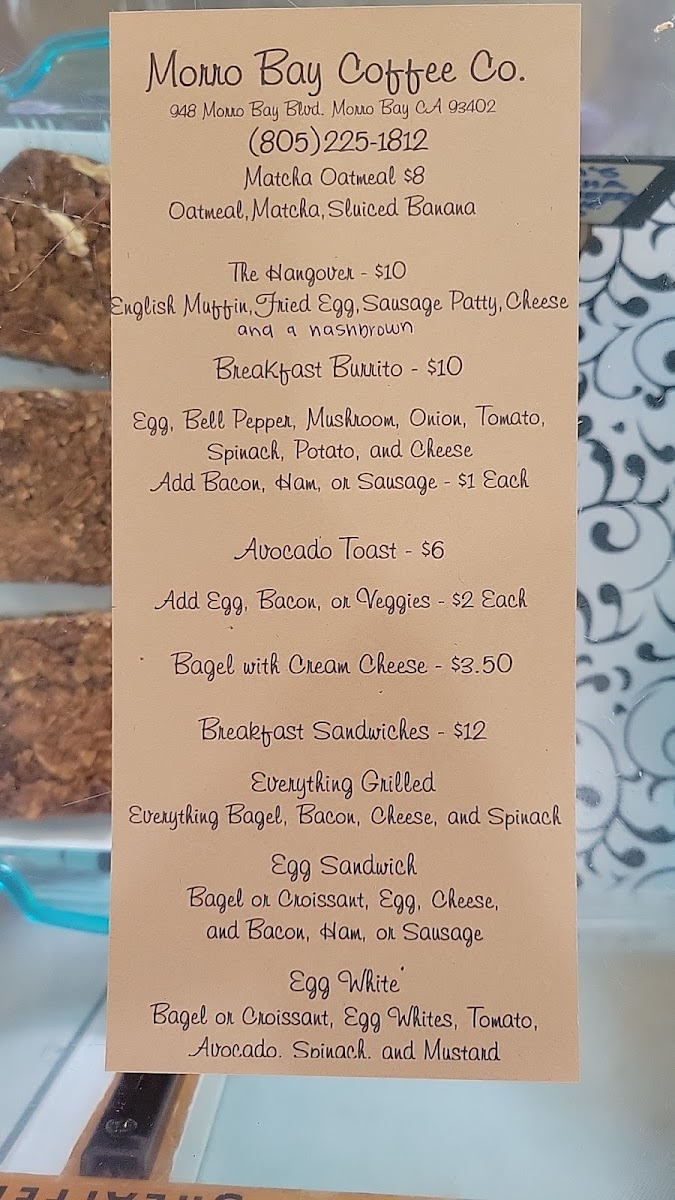 Morro Bay Coffee Co.
948 Morro Bay Blvd. Morro Bay CA 93402
(805)225-1812
Matcha Oatmeal $8
Oatmeal, Matcha, Sluiced Banana
The Hangover - $10
English Muffin, Fried Egg, Sausage Patty, Cheese
and a hashbrown
Breakfast Burrito - $10
Egg, Bell Pepper, Mushroom, Onion, Tomato,
Spinach, Potato, and Cheese
Add Bacon, Ham, or Sausage - $1 Each
Avocado Toast - $6
Add Egg, Bacon, or Veggies - $2 Each
Bagel with Cream Cheese - $3.50
Breakfast Sandwiches - $12
Everything Grilled
Everything Bagel, Bacon, Cheese, and Spinach
Egg Sandwich
Bagel or Croissant, Egg, Cheese,
and Bacon, Ham, or Sausage
Egg White
Bagel or Croissant, Egg Whites, Tomato,
Avocado, Spinach, and Mustard